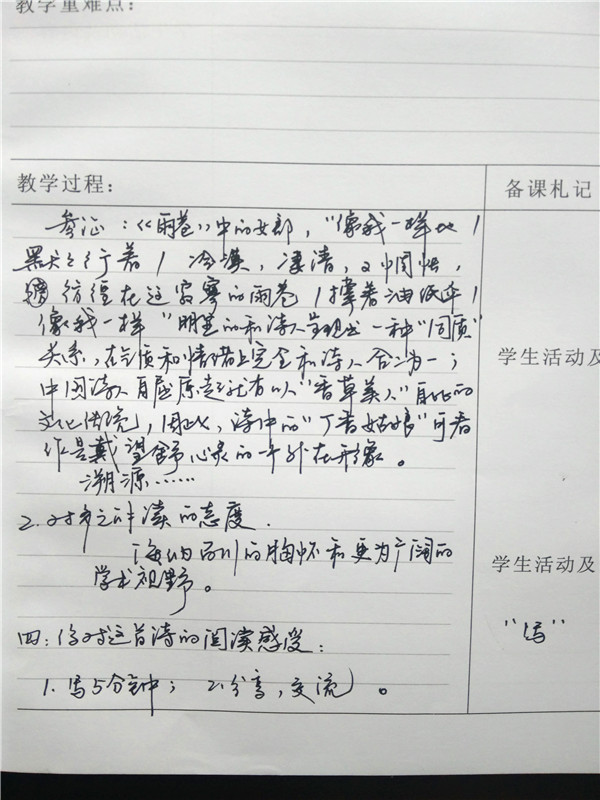 教学重难点：
教学过程：
备课札记
参证：《雨巷》中的女郎，"像我一样地/
默默彳亍着/冷漠，凄清，又惆怅，
彷徨在这寂寥的雨巷/撑着油纸伞/
像我一样"明显的和诗人呈现出一种"同质"
关系，在气质和情绪上完全和诗人合二为一；
中国诗人自屈原起就有以"香草美人"自比的
文化传统，因此，诗中的"丁香姑娘"可看
作是戴望舒心灵的一个外在形象。
溯源……
学生活动及
2.对
读的态度.
海纳百川的胸怀和更为广阔的
学术视野。
学生活动及
四：你对这首诗的阅读感受：
"写"
1.写5分钟； 2.分享，交流。